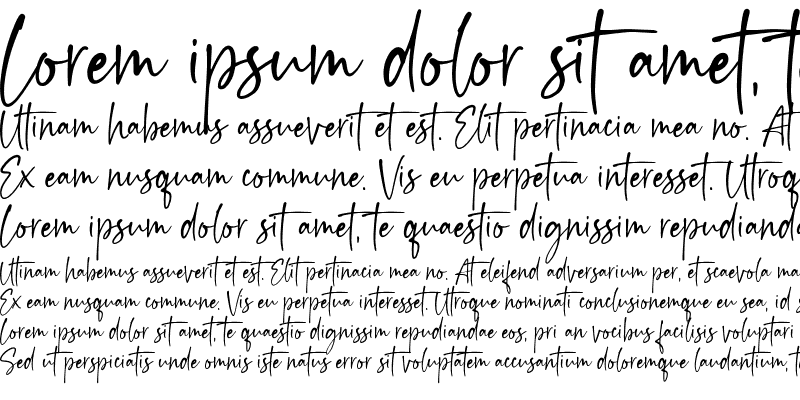 Lorem ipsum dolor sit amet, t
Uttinam habemus assueverit et est. Elit pertinacia mea no. At
Ex eam nusquam commune. Vis eu perpetua interesset. Utroq
Lorem ipsum dolor sit amet, te quaestio dignissim repudianda
Uttinam habemus assueverit et est. Elit pertinacia mea no. At eleifend adversarium per, et scaevola ma
Ex eam nusquam commune. Vis eu perpetua interesset. Utroque nominati conclusionemque eu sea, id s
Lorem ipsum dolor sit amet, te quaestio dignissim repudiandae eos, pri an vocibus facilisis voluptari
Sed ut perspiciatis unde omnis iste natus error sit voluptatem accusantium doloremque laudantium, t